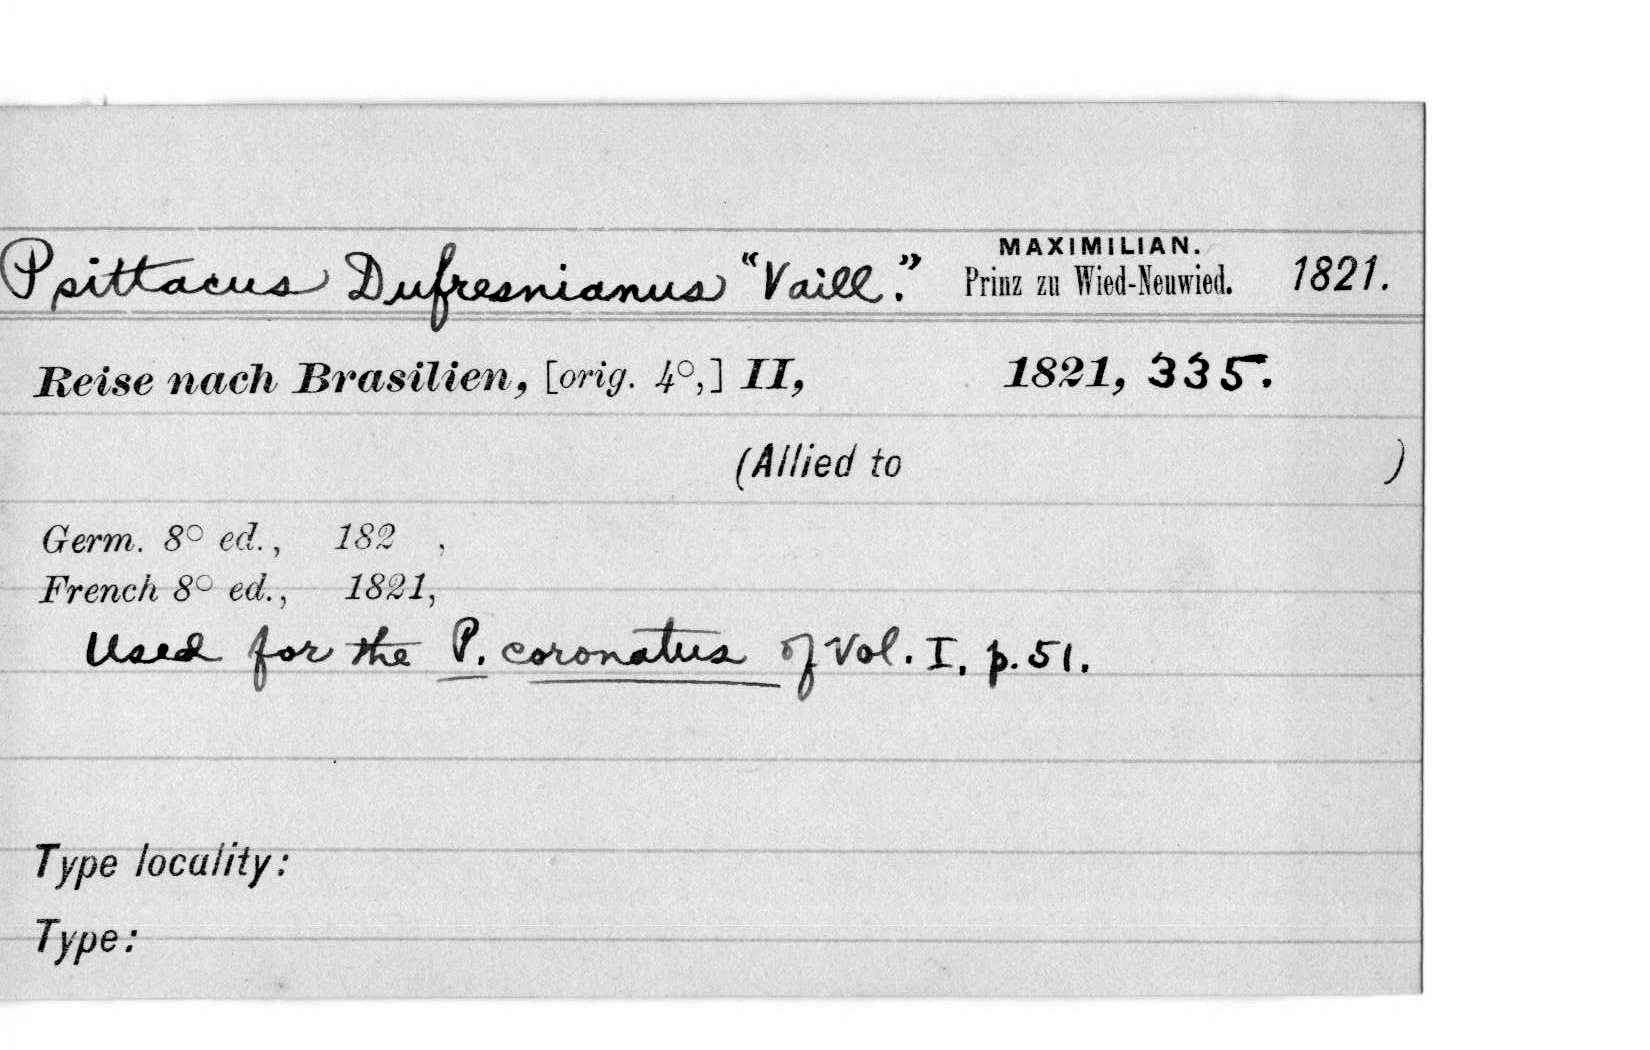 Psittacus Dufresnianus "Vaill." MAXIMILIAN. Prinz zu Wied-Neuwied. 1821.
Reise nach Brasilien, [orig. 4°,] II, 1821, 335.
(Allied to )
Germ. 8° ed., 182 ,
French 8° ed., 1821,
Used for the P. coronatus of Vol. I, p. 51.
Type locality:
Type: